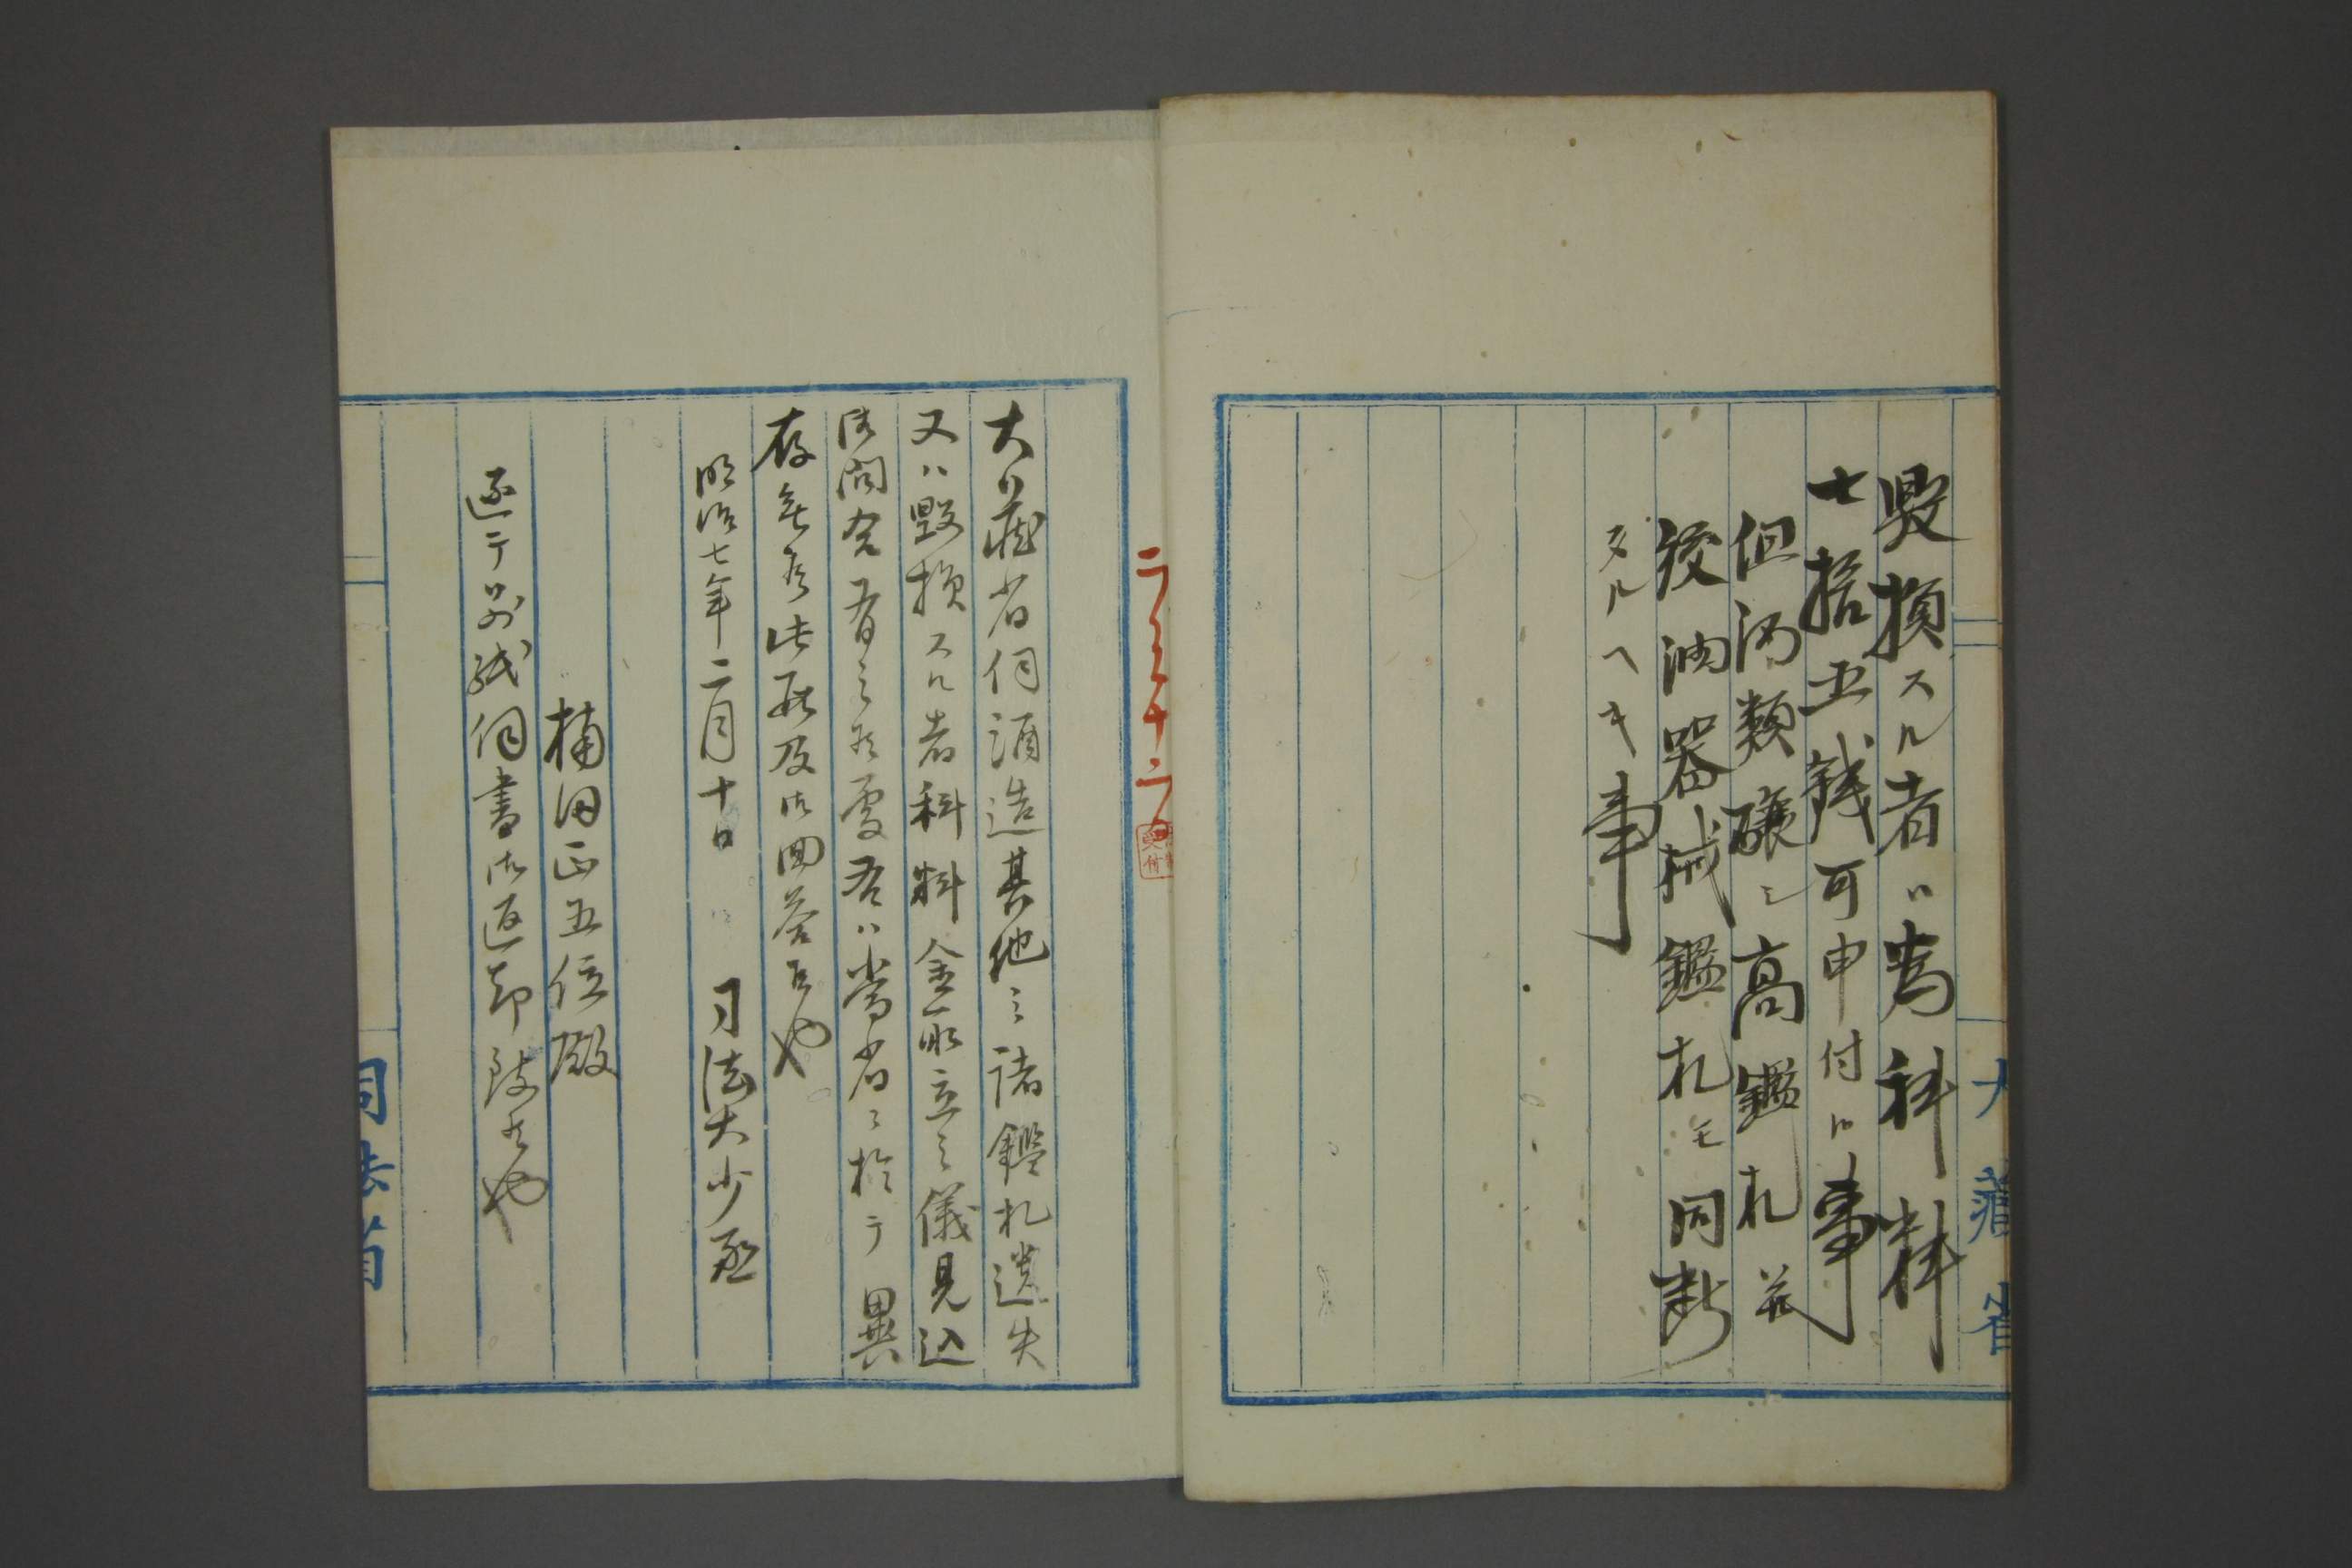 毀損スル者ハ為科料
七拾五銭可申付事
但酒類醸之高鑑札並
絞油器械鑑札モ同断
タルヘキ事
大蔵省
大蔵省伺酒造其他之諸鑑札遺失
又ハ毀損スル者科料金取立之儀見込
御問合有之候処右ハ当省ニ於テ異
存無之候此段及御回答候也
明治七年二月十日 司法大少丞
楠田正五位殿
逐テ別紙伺書御返却致候也
司法省